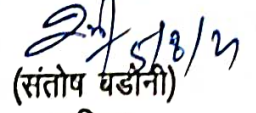 5/8/21
(संतोष बडोनी)